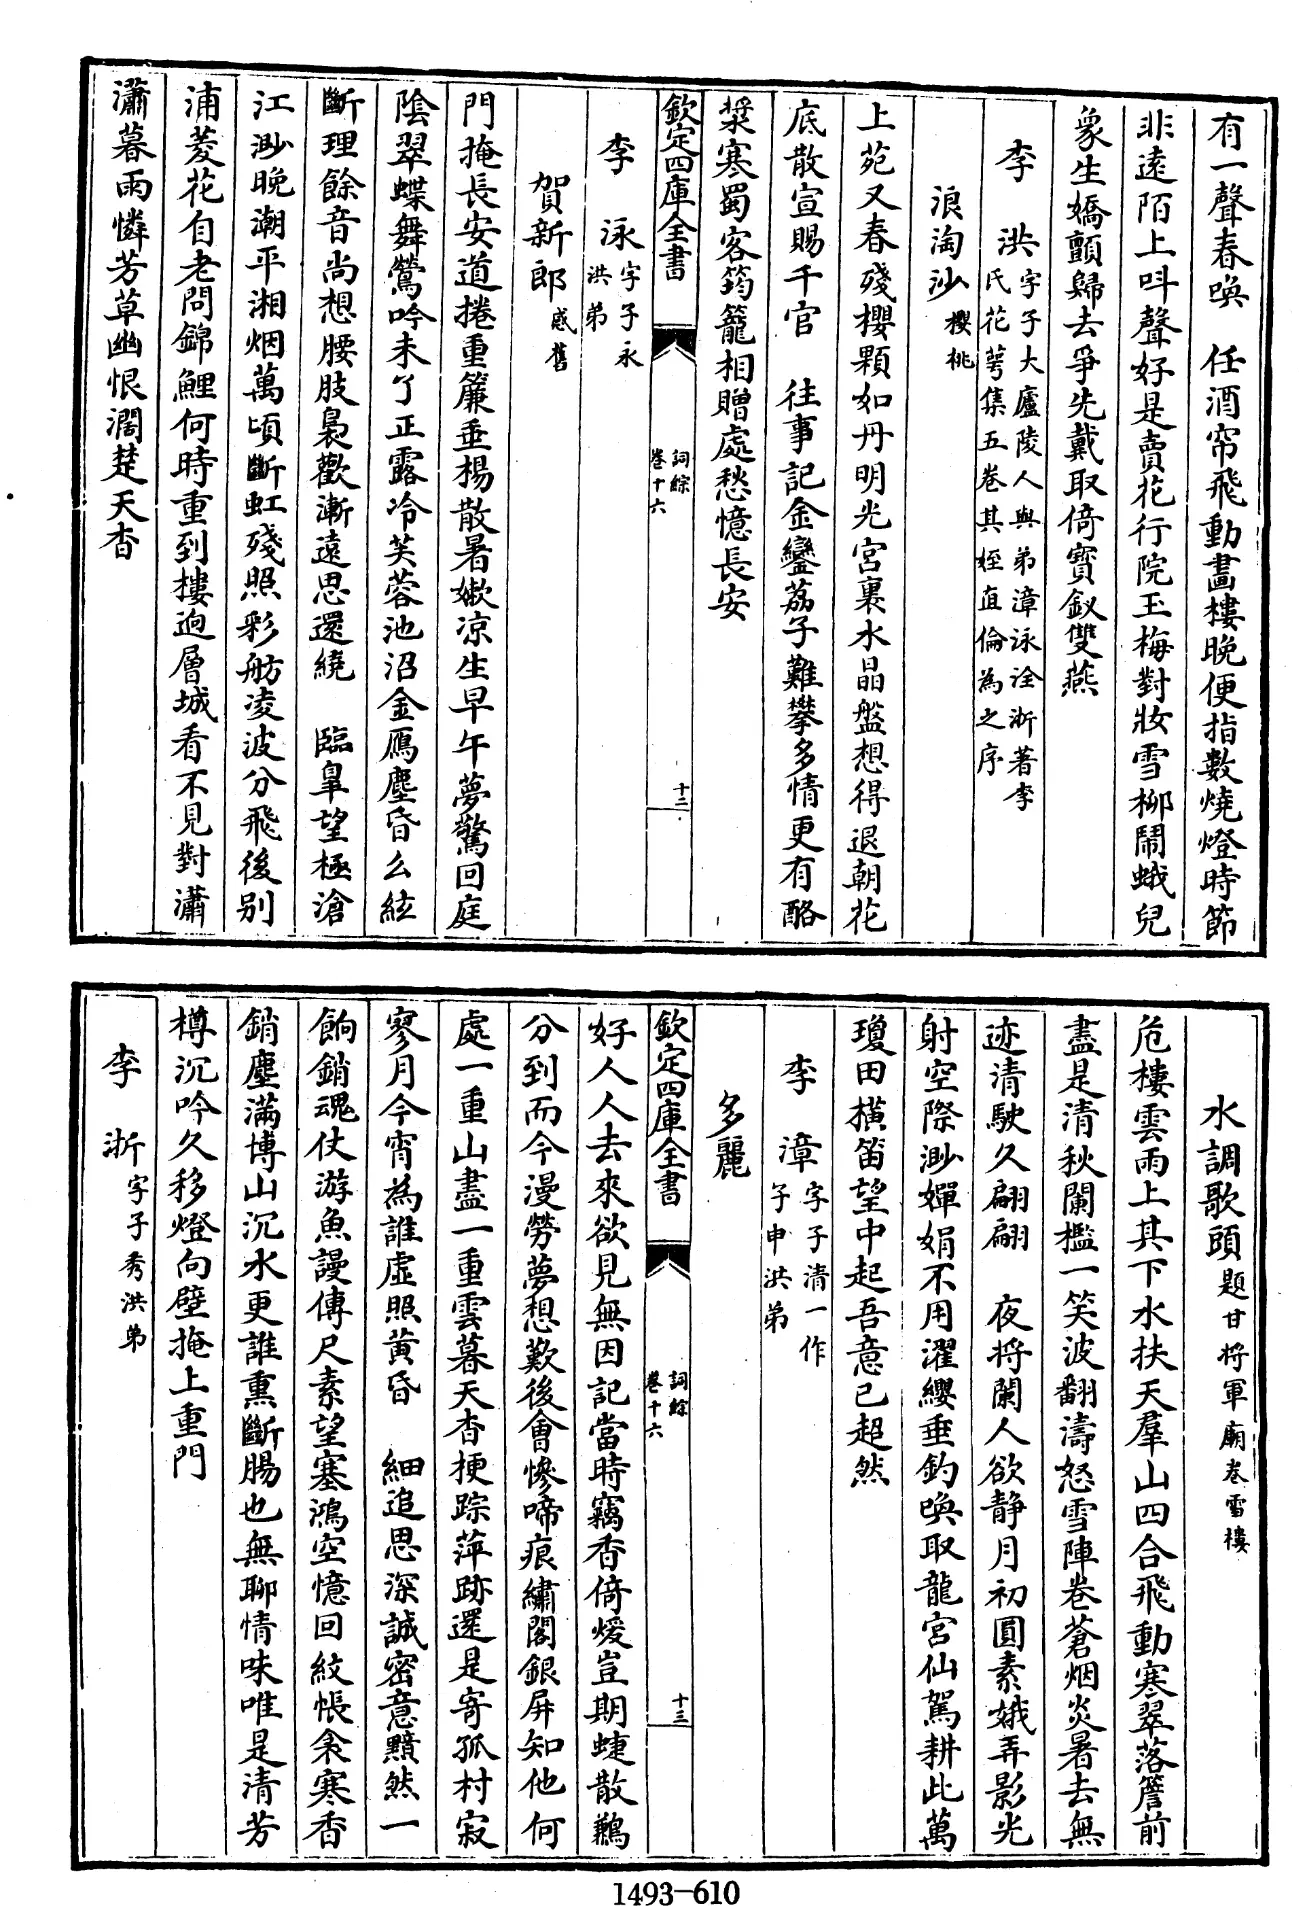 有一聲春喚　任酒帘飛動畫樓晚便指數燒燈時節
非遠陌上叫聲好是賣花行院玉梅對妝雪柳鬧蛾兒
象生嬌顫歸去爭先戴取倚寶釵雙燕
李　洪字子大廬陵人與弟漳泳洤淅著李
氏花萼集五卷其姪直倫為之序
浪淘沙櫻桃
上苑又春殘櫻顆如丹明光宮裏水晶盤想得退朝花
底散宣賜千官　往事記金鑾荔子難攀多情更有酪
漿寒蜀客筠籠相贈處愁憶長安
欽定四庫全書
詞綜
卷十六
十二
李　泳字子永
洪弟
賀新郎感舊
門掩長安道捲重簾垂楊散暑嫩凉生早午夢驚回庭
陰翠蝶舞鶯吟未了正露冷芙蓉池沼金鴈塵昏么絃
斷理餘音尚想腰肢裊歡漸遠思還繞　臨臯望極滄
江渺晚潮平湘烟萬頃斷虹殘照彩舫凌波分飛後别
浦菱花自老問錦鯉何時重到樓迥層城看不見對瀟
瀟暮雨憐芳草幽恨濶楚天杳
水調歌頭題甘將軍廟卷雪樓
危樓雲雨上其下水扶天羣山四合飛動寒翠落簷前
盡是清秋闌檻一笑波翻濤怒雪陣卷蒼烟炎暑去無
迹清駛久翩翩　夜將闌人欲靜月初圓素娥弄影光
射空際渺嬋娟不用濯纓垂釣喚取龍宮仙駕耕此萬
瓊田横笛望中起吾意已超然
李　漳字子清一作
子申洪弟
多麗
欽定四庫全書
詞綜
卷十六
十三
好人人去來欲見無因記當時竊香倚煖豈期蜨散鶼
分到而今漫勞夢想歎後會慘啼痕繡閣銀屏知他何
處一重山盡一重雲暮天杳梗踪萍跡還是寄孤村寂
寥月今宵為誰虛照黄昏　細追思深誠密意黯然一
餉銷魂仗游魚謾傳尺素望塞鴻空憶回紋帳衾寒香
銷塵滿博山沉水更誰熏斷腸也無聊情味唯是清芳
樽沉吟久移燈向壁掩上重門
李　淅字子秀洪弟
1493-610